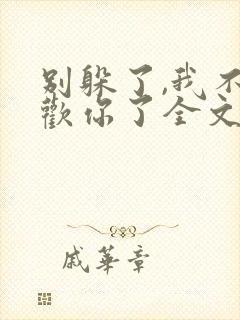 别躲了,我不
歡你了全文
戚華章